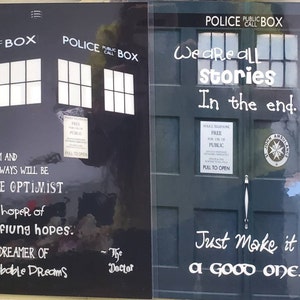 BOX
POLICE PUBLIC CALL BOX
FREE
FOR USE OF
PUBLIC
PULL TO OPEN
M AND
WAYS WILL BE
E OPTIMIST
hoper of
flung hopes.
DREAMER OF
bable Dreams
~ The
Doctor
POLICE PUBLIC CALL BOX
We are all
stories
In the end.
POLICE TELEPHONE
FREE
FOR USE OF
PUBLIC
PULL TO OPEN
Just Make it
a good one.